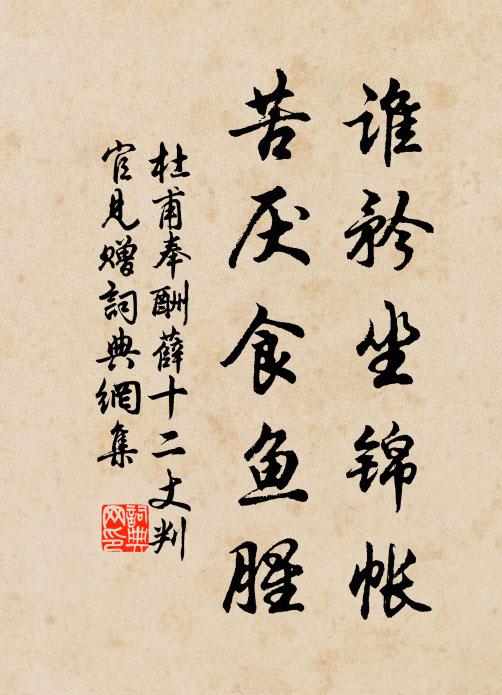 谁矜坐锦帐
苦厌食鱼腥
杜甫奉酬薛十二丈判
官见赠詞典網集
詞典網印